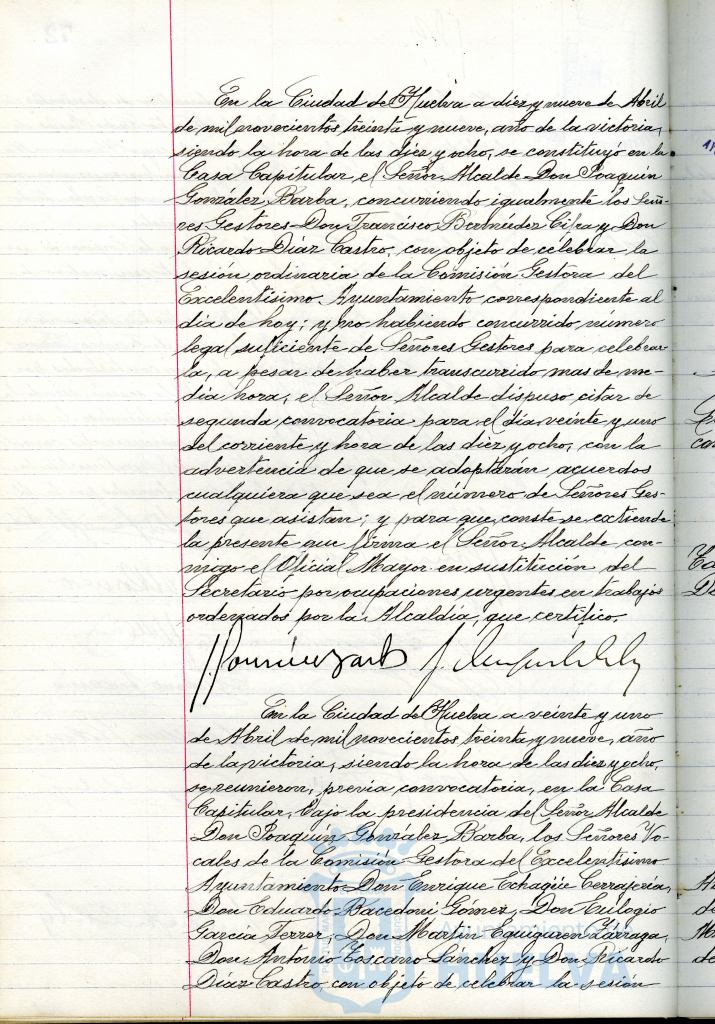 En la Ciudad de Huelva a diez y nueve de Abril
de mil novecientos treinta y nueve, año de la victoria,
siendo la hora de las diez y ocho, se constituyó en la
Casa Capitular el Señor Alcalde Don Joaquín
González Barba, concurriendo igualmente los Seño-
res Gestores Don Francisco Bermúdez Cifra y Don
Ricardo Díaz Castro, con objeto de celebrar la
sesión ordinaria de la Comisión Gestora del
Excelentísimo Ayuntamiento correspondiente al
día de hoy; y no habiendo concurrido número
legal suficiente de Señores Gestores para celebrar-
la, a pesar de haber transcurrido mas de me-
dia hora, el Señor Alcalde dispuso citar de
segunda convocatoria para el día veinte y uno
del corriente y hora de las diez y ocho, con la
advertencia de que se adoptarán acuerdos
cualquiera que sea el número de Señores Ges-
tores que asistan; y para que conste se extiende
la presente que firma el Señor Alcalde con-
migo el Oficial Mayor en sustitución del
Secretario por ocupaciones urgentes en trabajos
ordenados por la Alcaldía, que certifico.
En la Ciudad de Huelva a veinte y uno
de Abril de mil novecientos treinta y nueve, año
de la victoria, siendo la hora de las diez y ocho,
se reunieron, previa convocatoria, en la Casa
Capitular, bajo la presidencia del Señor Alcalde
Don Joaquín González Barba, los Señores Vo-
cales de la Comisión Gestora del Excelentísimo
Ayuntamiento Don Enrique Echagüe Cerrajería,
Don Eduardo Bacedoni Gómez, Don Eulogio
García Ferrer, Don Martín Eguiguren Zárraga,
Don Antonio Toscano Sánchez y Don Ricardo
Díaz Castro con objeto de celebrar la sesión
Ayuntamiento de
HUELVA